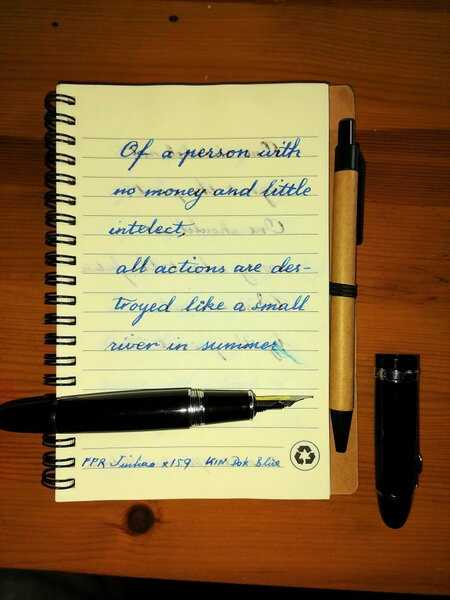 Of a person with
no money and little
intelect,
all actions are des-
troyed like a small
river in summer
FPR Jinhao x159 / KIN Dok Blue